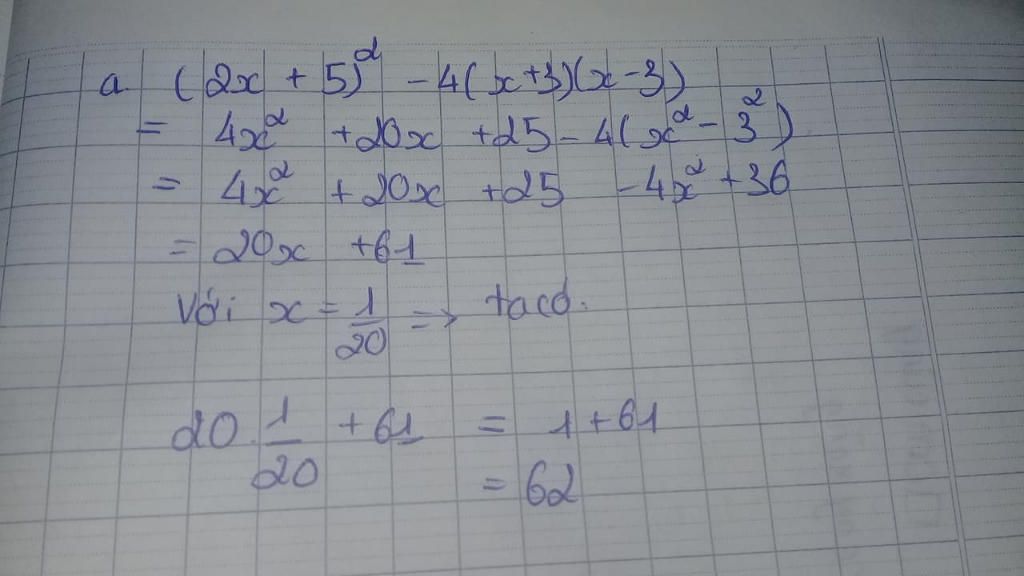 a. (2x + 5)² - 4(x+3)(x-3)
= 4x² + 20x + 25 - 4(x² - 3²)
= 4x² + 20x + 25 - 4x² + 36
= 20x + 61
Với x = 1/20 => ta có.
20 . 1/20 + 61 = 1 + 61
= 62